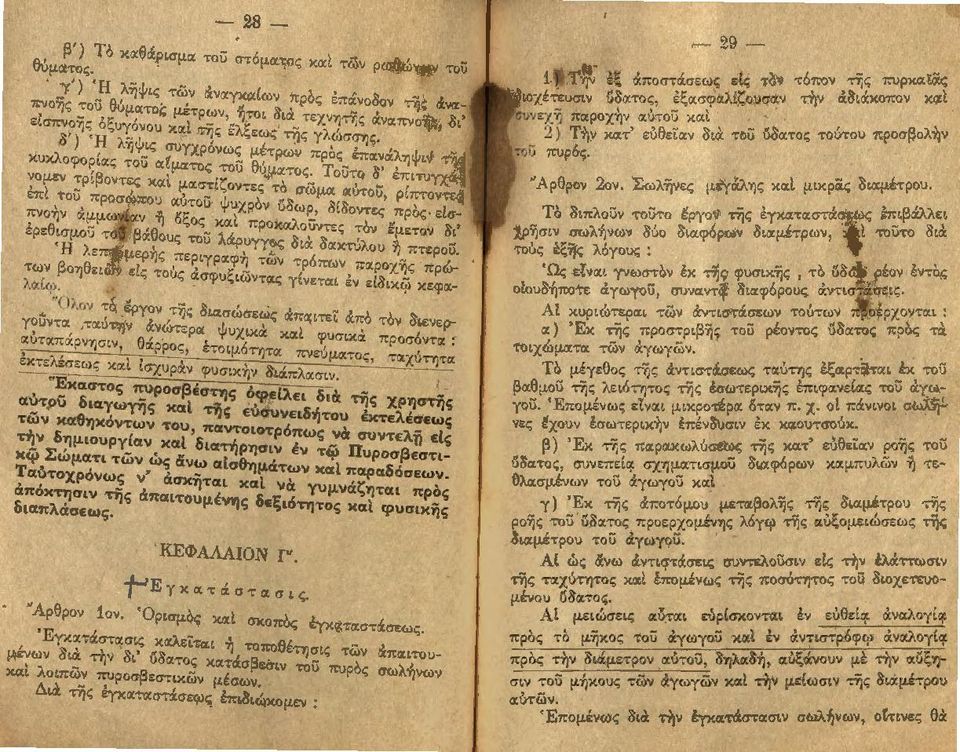 — 28 —
β') Τὸ καθάρισμα τοῦ στόματος καὶ τῶν τοῦ
θύματος.
γ') Ἡ λῆψις τῶν ἀναγκαίων πρὸς ἐπάνοδον τῆς ἀνα-
πνοῆς τοῦ θύματος μέτρων, ἤτοι διὰ τεχνητῆς ἀναπνοῆς, δι'
εἰσπνοῆς ὀξυγόνου καὶ τῆς ἕλξεως τῆς γλώσσης.
δ') Ἡ λῆψις συγχρόνως μέτρων πρὸς ἐπανάληψιν τῆς
κυκλοφορίας τοῦ αἵματος τοῦ θύματος. Τοῦτο δ' ἐπιτυγχά-
νομεν τρίβοντες καὶ μαστίζοντες τὸ σῶμα αὐτοῦ, ρίπτοντες
ἐπὶ τοῦ προσώπου αὐτοῦ ψυχρὸν ὕδωρ, δίδοντες πρὸς εἰσ-
πνοὴν ἀμμωνίαν ἢ ὄξος καὶ προκαλοῦντες τὸν ἔμετον δι'
ἐρεθισμοῦ τοῦ βάθους τοῦ λάρυγγος διὰ δακτύλου ἢ πτεροῦ.
Ἡ λεπτομερὴς περιγραφὴ τῶν τρόπων παροχῆς πρώ-
των βοηθειῶν εἰς τοὺς ἀσφυξιῶντας γίνεται ἐν εἰδικῷ κεφα-
λαίῳ.
Ὅλον τὸ ἔργον τῆς διασώσεως ἀπαιτεῖ ἀπὸ τὸν διενερ-
γοῦντα ταύτην ἀνώτερα ψυχικὰ καὶ φυσικὰ προσόντα :
αὐταπάρνησιν, θάρρος, ἑτοιμότητα πνεύματος, ταχύτητα
ἐκτελέσεως καὶ ἰσχυρὰν φυσικὴν διάπλασιν.
Ἕκαστος πυροσβέστης ὀφείλει διὰ τῆς χρηστῆς
αὐτοῦ διαγωγῆς καὶ τῆς εὐσυνειδήτου ἐκτελέσεως
τῶν καθηκόντων του, παντοιοτρόπως νὰ συντελῇ εἰς
τὴν δημιουργίαν καὶ διατήρησιν ἐν τῷ Πυροσβεστι-
κῷ Σώματι τῶν ὡς ἄνω αἰσθημάτων καὶ παραδόσεων.
Ταὐτοχρόνως ν' ἀσκῆται καὶ νὰ γυμνάζηται πρὸς
ἀπόκτησιν τῆς ἀπαιτουμένης δεξιότητος καὶ φυσικῆς
διαπλάσεως.
ΚΕΦΑΛΑΙΟΝ Γ'.
Ἐγκατάστασις.
Ἄρθρον 1ον. Ὁρισμὸς καὶ σκοπὸς ἐγκαταστάσεως.
Ἐγκατάστασις καλεῖται ἡ τοποθέτησις τῶν ἀπαιτου-
μένων διὰ τὴν δι' ὕδατος κατάσβεσιν τοῦ πυρὸς σωλήνων
καὶ λοιπῶν πυροσβεστικῶν μέσων.
Διὰ τῆς ἐγκαταστάσεως ἐπιδιώκομεν :
— 29 —
1) Τὴν ἐξ ἀποστάσεως εἰς τὸν τόπον τῆς πυρκαϊᾶς
διοχέτευσιν ὕδατος, ἐξασφαλίζουσαν τὴν ἀδιάκοπον καὶ
συνεχῆ παροχὴν αὐτοῦ καὶ
2) Τὴν κατ' εὐθεῖαν διὰ τοῦ ὕδατος τούτου προσβολὴν
τοῦ πυρός.
Ἄρθρον 2ον. Σωλῆνες μεγάλης καὶ μικρᾶς διαμέτρου.
Τὸ διπλοῦν τοῦτο ἔργον τῆς ἐγκαταστάσεως ἐπιβάλλει
χρῆσιν σωλήνων δύο διαφόρων διαμέτρων, καὶ τοῦτο διὰ
τοὺς ἑξῆς λόγους :
Ὡς εἶναι γνωστὸν ἐκ τῆς φυσικῆς , τὸ ὕδωρ ρέον ἐντὸς
οἱουδήποτε ἀγωγοῦ, συναντᾷ διαφόρους ἀντιστάσεις.
Αἱ κυριώτεραι τῶν ἀντιστάσεων τούτων προέρχονται :
α) Ἐκ τῆς προστριβῆς τοῦ ρέοντος ὕδατος πρὸς τὰ
τοιχώματα τῶν ἀγωγῶν.
Τὸ μέγεθος τῆς ἀντιστάσεως ταύτης ἐξαρτᾶται ἐκ τοῦ
βαθμοῦ τῆς λειότητος τῆς ἐσωτερικῆς ἐπιφανείας τοῦ ἀγω-
γοῦ. Ἑπομένως εἶναι μικροτέρα ὅταν π. χ. οἱ πάνινοι σωλῆ-
νες ἔχουν ἐσωτερικὴν ἐπένδυσιν ἐκ καουτσούκ.
β) Ἐκ τῆς παρακωλύσεως τῆς κατ' εὐθεῖαν ροῆς τοῦ
ὕδατος, συνεπείᾳ σχηματισμοῦ διαφόρων καμπυλῶν ἢ τε-
θλασμένων τοῦ ἀγωγοῦ καὶ
γ) Ἐκ τῆς ἀποτόμου μεταβολῆς τῆς διαμέτρου τῆς
ροῆς τοῦ ὕδατος προερχομένης λόγῳ τῆς αὐξομειώσεως τῆς
διαμέτρου τοῦ ἀγωγοῦ.
Αἱ ὡς ἄνω ἀντιστάσεις συντελοῦσιν εἰς τὴν ἐλάττωσιν
τῆς ταχύτητος καὶ ἑπομένως τῆς ποσότητος τοῦ διοχετευο-
μένου ὕδατος.
Αἱ μειώσεις αὗται εὑρίσκονται ἐν εὐθείᾳ ἀναλογίᾳ
πρὸς τὸ μῆκος τοῦ ἀγωγοῦ καὶ ἐν ἀντιστρόφῳ ἀναλογίᾳ
πρὸς τὴν διάμετρον αὐτοῦ, δηλαδή, αὐξάνουν μὲ τὴν αὔξη-
σιν τοῦ μήκους τῶν ἀγωγῶν καὶ τὴν μείωσιν τῆς διαμέτρου
αὐτῶν.
Ἑπομένως διὰ τὴν ἐγκατάστασιν σωλήνων, οἵτινες θὰ